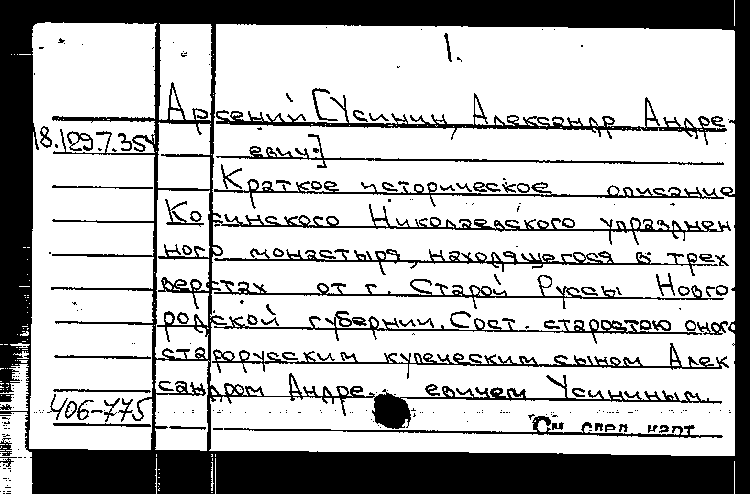 1.
Арсений [Усинин, Александр Андре-
18.129.7.354
евич.]
Краткое историческое описание
Косинского Николаевского упразднен
ного монастыря, находящегося в трех
верстах от г. Старой Руссы Новго-
родской губернии. Сост. старостою оного
старорусским купеческим сыном Алек
сандром Андре- евичем Усининым.
406-775
См. след. карт.